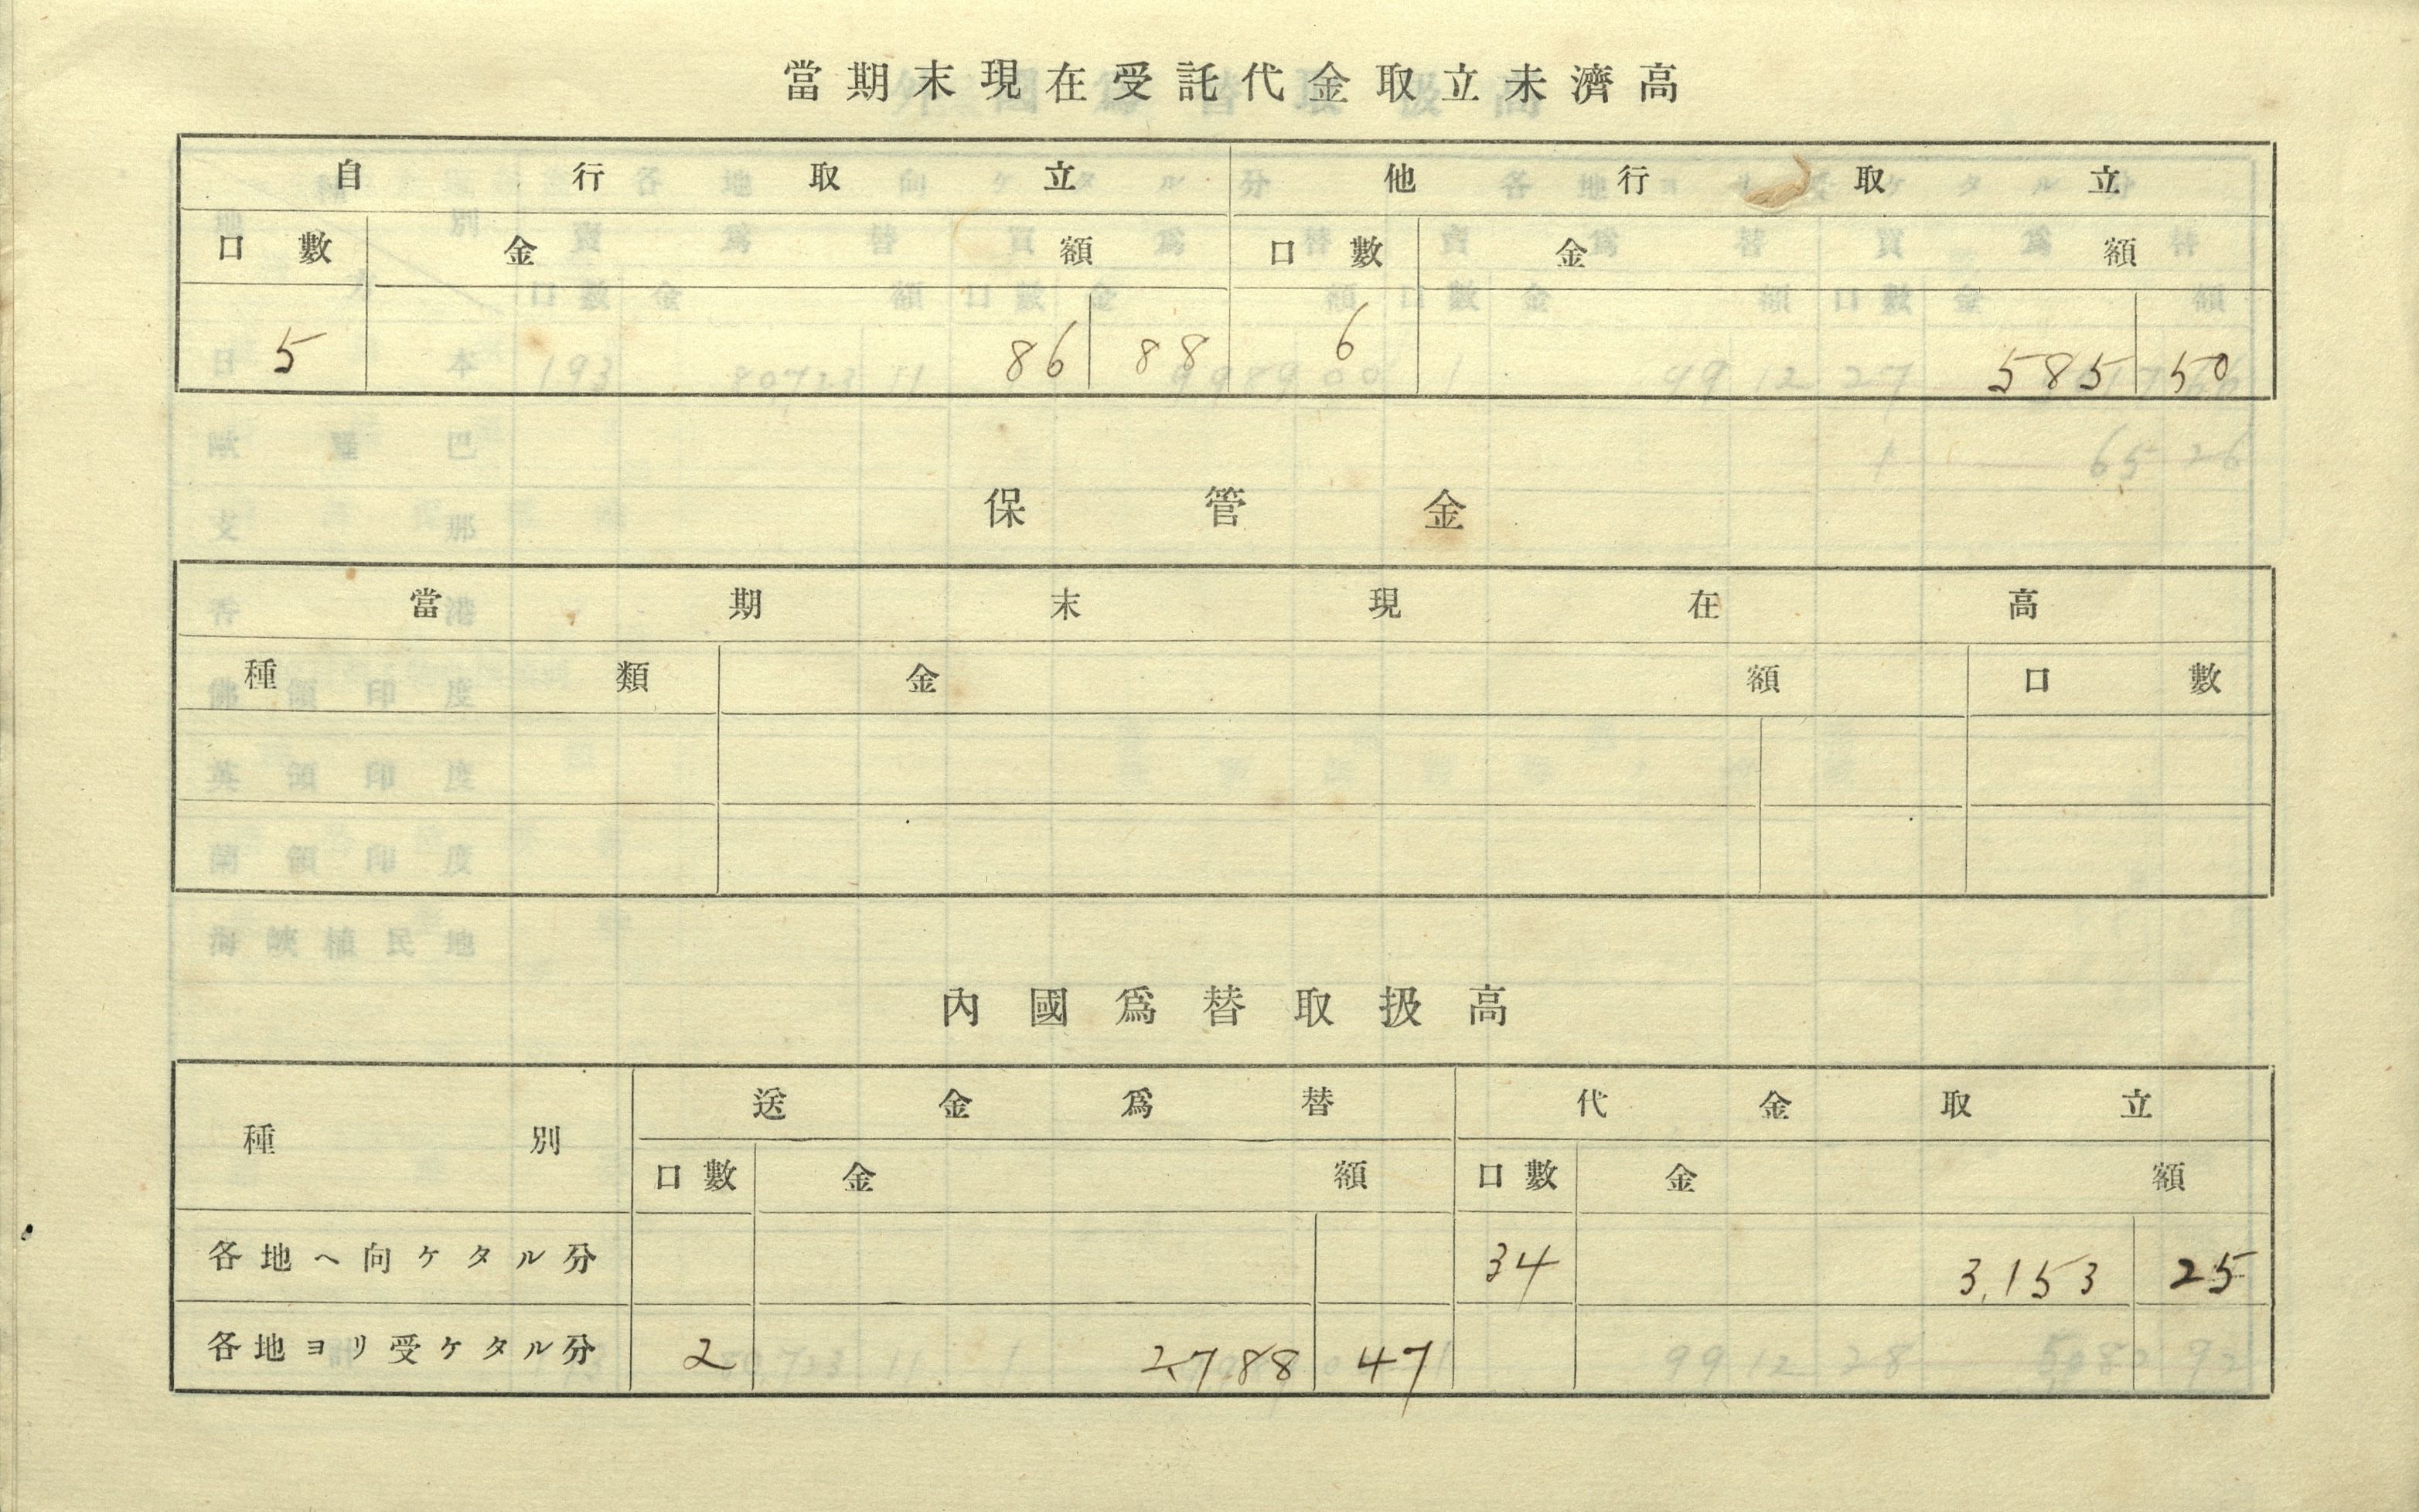 當期末現在受託代金取立未濟高
自行取立 他行取立
口數 金額 口數 金額
5 86 88 6 585 50
保管金
當期末現在高
種類 金額 口數
內國爲替取扱高
種別 送金爲替 代金取立
口數 金額 口數 金額
各地ヘ向ケタル分 34 3,153 25
各地ヨリ受ケタル分 2 2,788 47